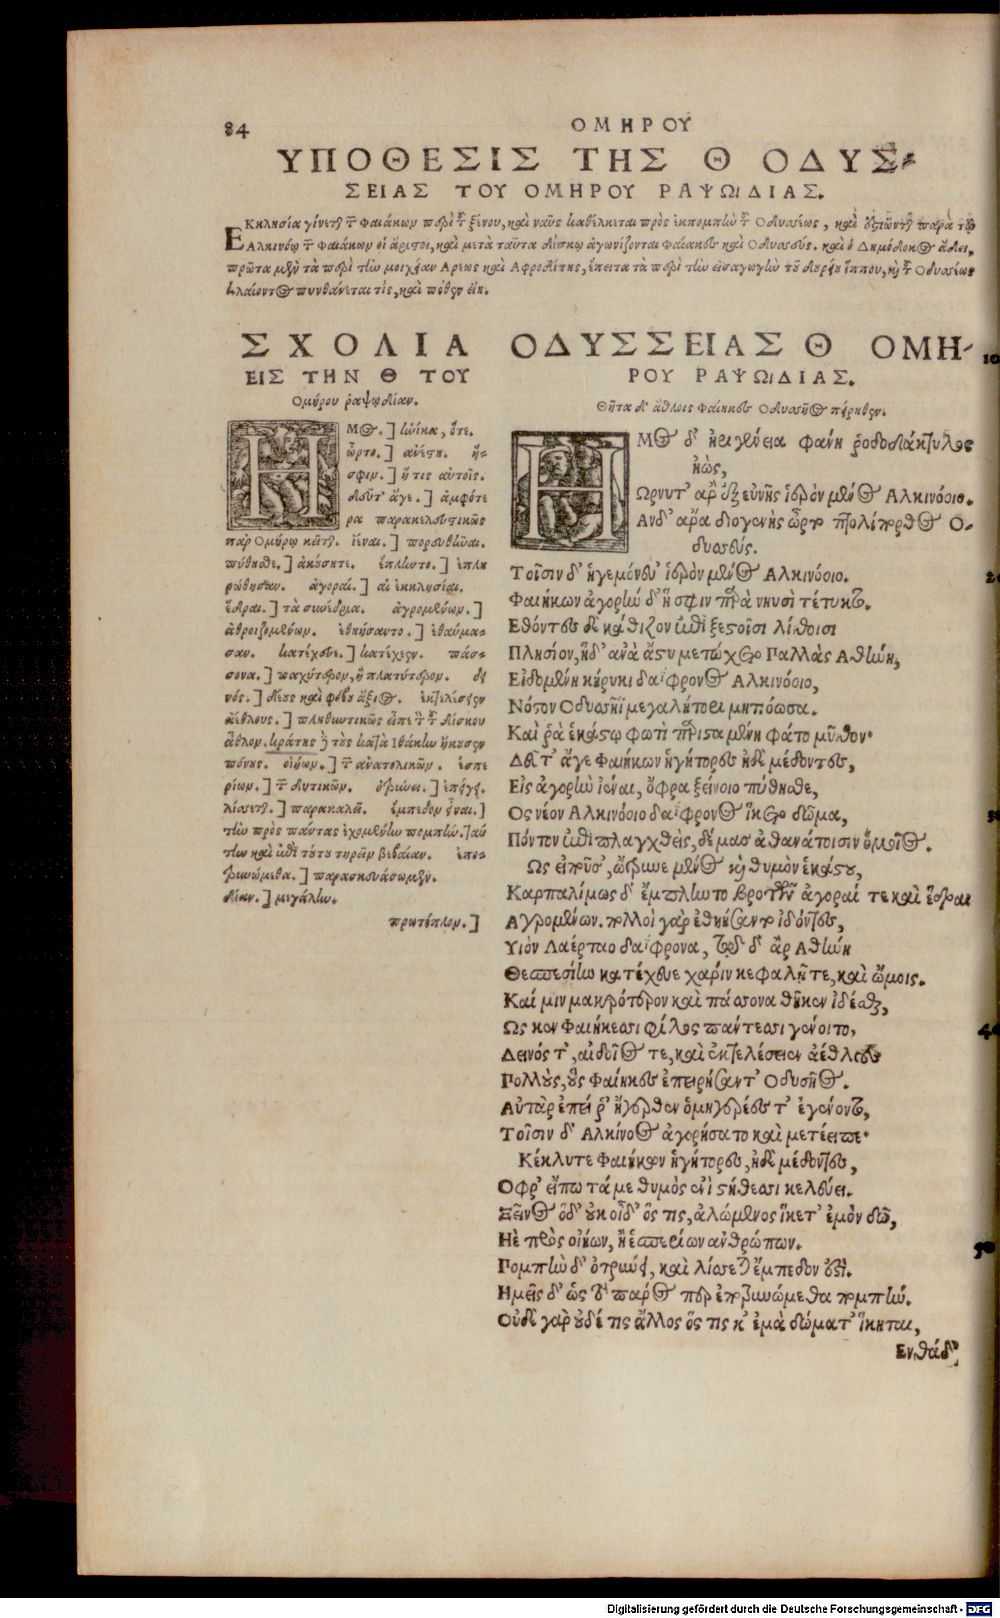 84
ΟΜΗΡΟΥ
ΥΠΟΘΕΣΙΣ ΤΗΣ Θ ΟΔΥΣ-
ΣΕΙΑΣ ΤΟΥ ΟΜΗΡΟΥ ΡΑΨΩΔΙΑΣ.
Εκκλησία γίνεται τῶν Φαιάκων περὶ τοῦ ξένου, καὶ ναῦς καθέλκεται πρὸς ἐκπομπὴν τοῦ Οδυσσέως, καὶ παρὰ τῷ
Αλκινόῳ τῶν Φαιάκων οἱ ἄριστοι, καὶ μετὰ ταῦτα δίσκῳ ἀγωνίζονται Φαίακες καὶ Οδυσσεύς. καὶ ὁ Δημόδοκος ἄδει,
πρῶτα μὲν τὰ περὶ τὴν μοιχείαν Αρεως καὶ Αφροδίτης, ἔπειτα τὰ περὶ τὴν εἰσαγωγὴν τοῦ δουρείου ἵππου, καὶ τοῦ Οδυσσέως
κλαίοντος πυνθάνεται τίς, καὶ πόθεν εἴη.
ΣΧΟΛΙΑ
ΕΙΣ ΤΗΝ Θ ΤΟΥ
Ομήρου ῥαψῳδίαν.
ΗΜος.] ἡνίκα, ὅτε.
ὦρτο.] ἀνέστη. ἥ-
σφιν.] ἥτις αὐτοῖς.
δεῦτ' ἄγε.] ἀμφότε
ρα παρακελευστικῶς
παρ' Ομήρῳ κεῖται. ἰέναι.] πορευθῆναι.
πύθησθε.] ἀκούσητε. ἔπληντο.] ἐπλη
ρώθησαν. ἀγοραί.] αἱ ἐκκλησίαι.
ἕδραι.] τὰ συνέδρια. ἀγρομένων.]
ἀθροιζομένων. ἐθηήσαντο.] ἐθαύμα-
σαν. κατέχευε.] κατέχεεν. πάσ-
σονα.] παχύτερον, ἢ πλατύτερον. δει
νός.] δέους καὶ φόβου ἄξιος. ἐκτελέσειεν
ἀέθλους.] πληθυντικῶς εἶπε τὸν τοῦ δίσκου
ἆθλον. κράτης δὲ τοὺς κατὰ Ιθάκην ἤκουσεν
πόνους. ἠοίων.] τῶν ἀνατολικῶν. ἑσπε
ρίων.] τῶν δυτικῶν. ὀτρύνει.] ἐπείγει.
λίσσεται.] παρακαλεῖ. ἔμπεδον εἶναι.]
τὴν πρὸς πάντας ἐχομένην πομπήν. ταύ
την καὶ ἐπὶ τούτου τηρεῖν βεβαίαν. ἐπο-
τρυνώμεθα.] παρασκευάσωμεν.
δῖαν.] μεγάλην.
πρωτόπλοον.]
ΟΔΥΣΣΕΙΑΣ Θ ΟΜΗ-
ΡΟΥ ΡΑΨΩΔΙΑΣ.
Θῆτα δ' ἄθλοις Φαίηκες Οδυσῆος πείρηθεν.
ΗΜος δ' ἠριγένεια φάνη ῥοδοδάκτυλος
ἠὼς,
Ωρνυτ' ἄρ' ἐξ εὐνῆς ἱερὸν μένος Αλκινόοιο.
Ανδ' ἄρα διογενὴς ὦρτο πτολίπορθος Ο-
δυσσεύς.
Τοῖσιν δ' ἡγεμόνευ' ἱερὸν μένος Αλκινόοιο.
Φαιήκων ἀγορὴν δ' ἥ σφιν παρὰ νηυσὶ τέτυκτο.
Ελθόντες δὲ κάθιζον ἐπὶ ξεστοῖσι λίθοισι
Πλησίον, ἡ δ' ἀνὰ ἄστυ μετῴχετο Παλλὰς Αθήνη,
Εἰδομένη κήρυκι δαΐφρονος Αλκινόοιο,
Νόστον Οδυσσῆϊ μεγαλήτορι μητιόωσα.
Καὶ ῥὰ ἑκάστῳ φωτὶ παρισταμένη φάτο μῦθον·
Δεῦτ' ἄγε Φαιήκων ἡγήτορες ἠδὲ μέδοντες,
Εἰς ἀγορὴν ἰέναι, ὄφρα ξείνοιο πύθησθε,
Ος νέον Αλκινόοιο δαΐφρονος ἵκετο δῶμα,
Πόντον ἐπιπλαγχθεὶς, δέμας ἀθανάτοισιν ὁμοῖος.
Ως εἰποῦσ', ὤτρυνε μένος καὶ θυμὸν ἑκάστου,
Καρπαλίμως δ' ἔμπληντο βροτῶν ἀγοραί τε καὶ ἕδραι
Αγρομένων. πολλοὶ γὰρ ἐθηήσαντο ἰδόντες,
Υιὸν Λαέρταο δαΐφρονα, τῷ δ' ἄρ Αθήνη
Θεσπεσίην κατέχευε χάριν κεφαλῇ τε, καὶ ὤμοις.
Καί μιν μακρότερον καὶ πάσσονα θῆκεν ἰδέσθαι,
Ως κεν Φαιήκεσσι φίλος πάντεσσι γένοιτο,
Δεινός τ', αἰδοῖός τε, καὶ ἐκτελέσειεν ἀέθλους
Πολλοὺς, οὓς Φαίηκες ἐπειρήσαντ' Οδυσῆος.
Αὐτὰρ ἐπεί ῥ' ἤγερθεν ὁμηγερέες τ' ἐγένοντο,
Τοῖσιν δ' Αλκίνοος ἀγορήσατο καὶ μετέειπε·
Κέκλυτε Φαιήκων ἡγήτορες, ἠδὲ μέδοντες,
Οφρ' εἴπω τά με θυμὸς ἐνὶ στήθεσσι κελεύει.
Ξεῖνος ὅδ' οὐκ οἶδ' ὅς τις, ἀλώμενος ἵκετ' ἐμὸν δῶ,
Ηὲ πρὸς οἰήων, ἢ ἑσπερίων ἀνθρώπων.
Πομπὴν δ' ὀτρύνει, καὶ λίσσεται ἔμπεδον εἶναι.
Ημεῖς δ' ὡς τὸ πάρος περ ἐποτρυνώμεθα πομπήν.
Οὐδὲ γὰρ οὐδέ τις ἄλλος ὅς τις κ' ἐμὰ δώματ' ἵκηται,
Ενθάδ'
Digitalisierung gefördert durch die Deutsche Forschungsgemeinschaft - DFG